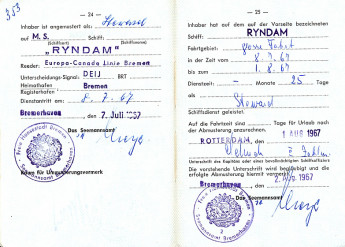 353
— 24 —
Inhaber ist angemustert als: Steward
auf M.S.
(Schiffsart) (Schiffsname)
„RYNDAM"
Reeder: Europa-Canada Linie Bremen
Unterscheidungs-Signal: DEIJ BRT
Heimathafen Bremen
Registerhafen
Dienstantritt am: 8. 7. 67
Bremerhaven den 7. Juli 1967
Das Seemannsamt
Raum für Ummusterungsvermerk
— 25 —
Inhaber hat auf dem auf der Vorseite bezeichneten
Schiff: RYNDAM
Fahrtgebiet: große Fahrt
in der Zeit vom 8. 7. 67
bis zum 1. 8. 67
Dienstzeit: — Monate 25 Tage
als
Steward
Schiffsdienst geleistet.
Auf die Fahrtzeit sind Tage für Urlaub nach
der Abmusterung anzurechnen.
ROTTERDAM, 1 AUG 1967
Unterschrift des Kapitäns oder eines bevollmächtigten Schiffsoffiziers
Die vorstehende Unterschrift wird beglaubigt und die
erfolgte Abmusterung hiermit vermerkt.
Bremerhaven 2. Aug. 1967
Das Seemannsamt